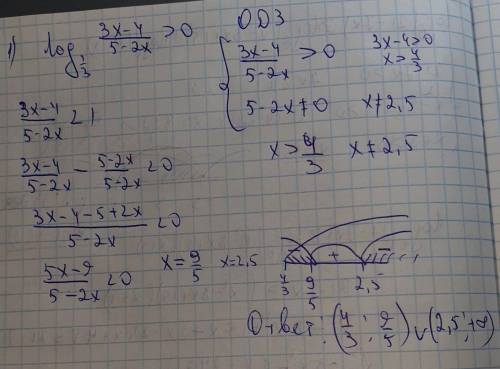 1) log_{1/3} (3x-4)/(5-2x) > 0
ОДЗ
{ (3x-4)/(5-2x) > 0
3x-4>0
x > 4/3
5-2x≠0 x≠2,5
x > 4/3 x≠2,5
(3x-4)/(5-2x) < 1
(3x-4)/(5-2x) - (5-2x)/(5-2x) < 0
(3x-4-5+2x)/(5-2x) < 0
(5x-9)/(5-2x) < 0
x = 9/5 x=2,5
- + -
4/3 9/5 2,5
Ответ: (4/3; 9/5) ∪ (2,5; +∞)